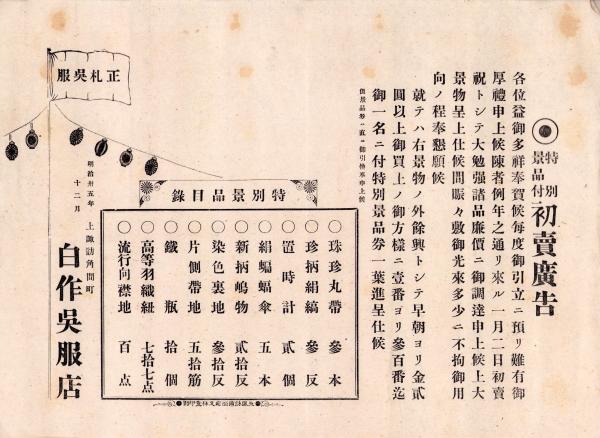 特別
景品付
初賣廣告
各位益御多祥奉賀候毎度御引立ニ預リ難有御
厚禮申上候陳者例年之通リ來ル一月二日初賣
祝トシテ大勉强諸品廉價ニ御調達申上候上大
景物呈上仕候間賑々敷御光來多少ニ不拘御用
向ノ程奉懇願候
就テハ右景物ノ外餘興トシテ早朝ヨリ金貳
圓以上御買上ノ御方樣ニ壹番ヨリ參百番迄
御一名ニ付特別景品券一葉進呈仕候
但景品券ハ直ニ御引換奉申上候
特別景品目錄
○珠珍丸帶 參本
○珍柄絹縞 參反
○置時計 貳個
○絹蝙蝠傘 五本
○新柄嶋物 貳拾反
○染色裏地 參拾反
○片側帶地 五拾筋
○鐵瓶 拾個
○高等羽織紐 七拾七点
○流行向襟地 百点
正札吳服
明治卅五年
十二月
上諏訪角間町
白作吳服店